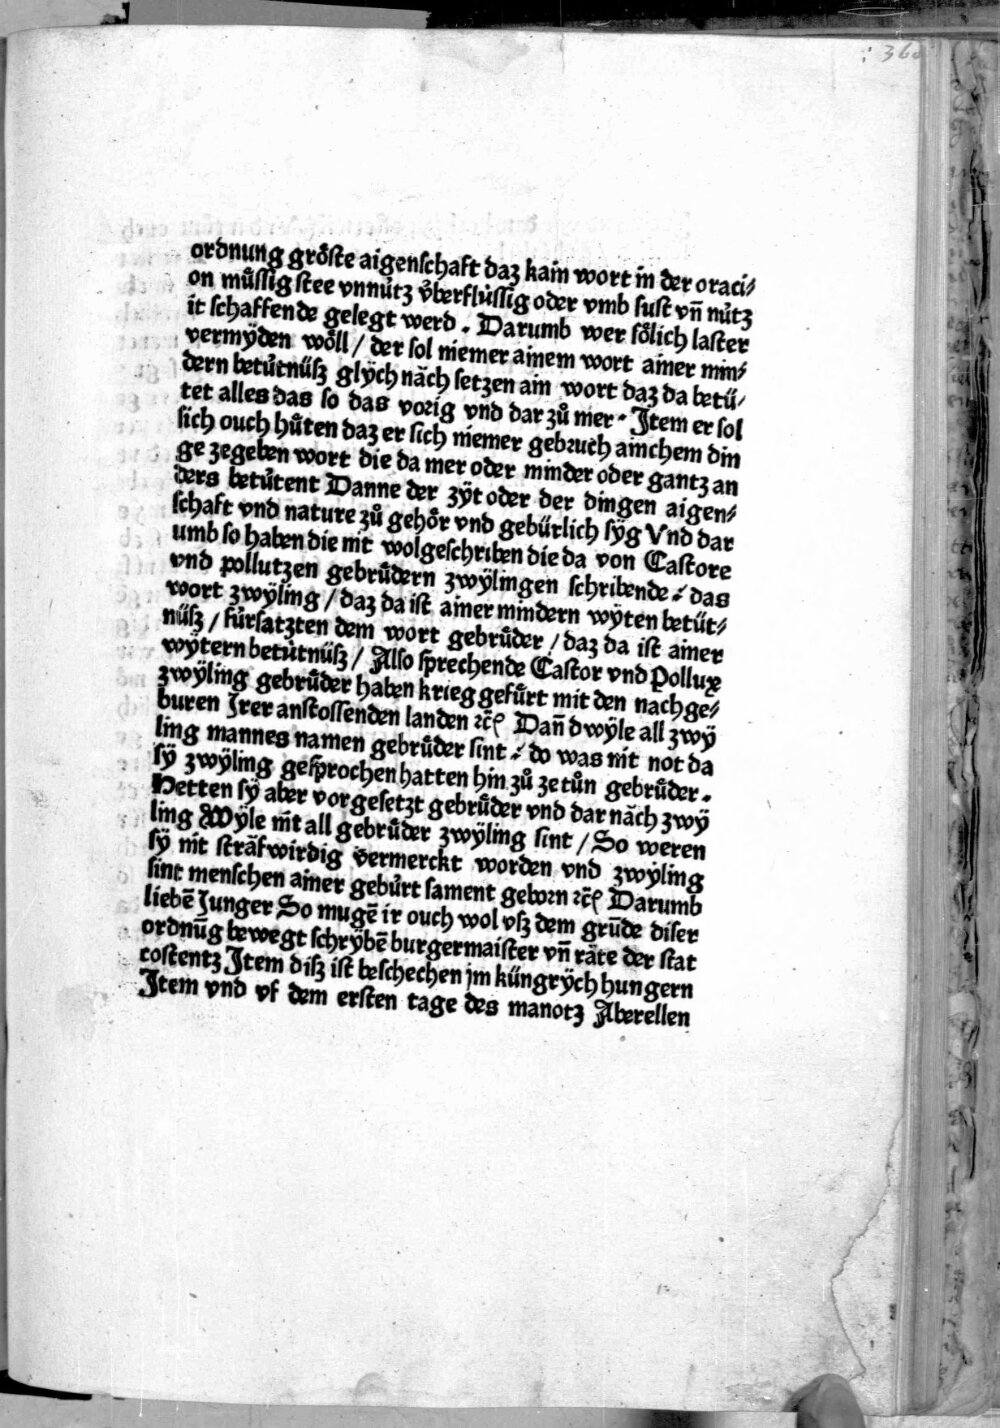 : 360
ordnung gröste aigenschaft daz kain wort in der oraci⸗
on mu̇ssig stee vnnu̇tz v̇berflu̇ssig oder vmb sust vn̄ nu̇tz
it schaffende gelegt werd . Darumb wer sölich laster
vermÿden wöll / der sol niemer ainem wort ainer min⸗
dern betu̇tnüsz glÿch näch setzen ain wort daz da betü⸗
tet alles das so das vorig vnd dar zů mer . Jtem er sol
sich ouch hu̇ten daz er sich niemer gebruch ainchem din
ge zegeben wort die da mer oder minder oder gantz an
ders betu̇tent Danne der zÿt oder der dingen aigen⸗
schaft vnd nature zů gehör vnd gebürlich sÿg Vnd dar
umb so haben die nit wolgeschriben die da von Castore
vnd pollutzen gebrůdern zwÿlingen schribende ⸗ das
wort zwÿling / daz da ist ainer mindern wÿten betüt⸗
nüsz / fürsatzten dem wort gebrůder / daz da ist ainer
wÿtern betu̇tnüsz / Also sprechende Castor vnd Pollux
zwÿling gebrůder haben krieg gefůrt mit den nachge⸗
buren Jrer anstossenden landen ꝛc̄ Dan̄ dwÿle all zwÿ
ling mannes namen gebrůder sint ⸗ do was nit not da
sÿ zwÿling gesprochen hatten hin zů zetůn gebrůder .
Hetten sÿ aber vorgesetzt gebrůder vnd dar näch zwÿ
ling Wÿle nit all gebrůder zwÿling sint / So weren
sÿ nit sträfwirdig vermerckt worden vnd zwÿling
sint menschen ainer gebu̇rt sament geborn ꝛc̄ Darumb
liebē Junger So mugē ir ouch wol vsz dem grūde diser
ordnūg bewegt schrÿbē burgermaister vn̄ räte der stat
costentz Jtem disz ist beschechen jm küngrÿch hungern
Jtem vnd vf dem ersten tage des manotz Aberellen